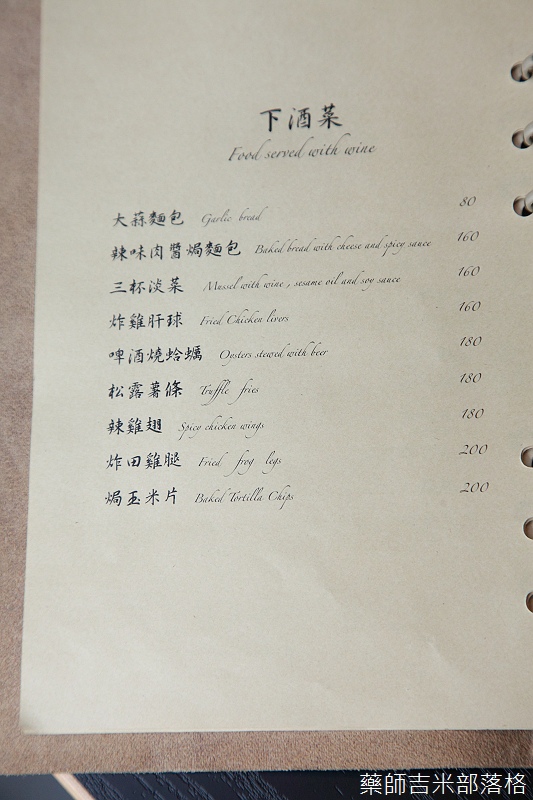 下酒菜
Food served with wine
大蒜麵包 Garlic bread 80
辣味肉醬焗麵包 Baked bread with cheese and spicy sauce 160
三杯淡菜 Mussel with wine , sesame oil and soy sauce 160
炸雞肝球 Fried Chicken livers 160
啤酒燒蛤蠣 Oysters stewed with beer 180
松露薯條 Truffle fries 180
辣雞翅 Spicy chicken wings 180
炸田雞腿 Fried frog legs 200
焗玉米片 Baked Tortilla Chips 200
藥師吉米部落格